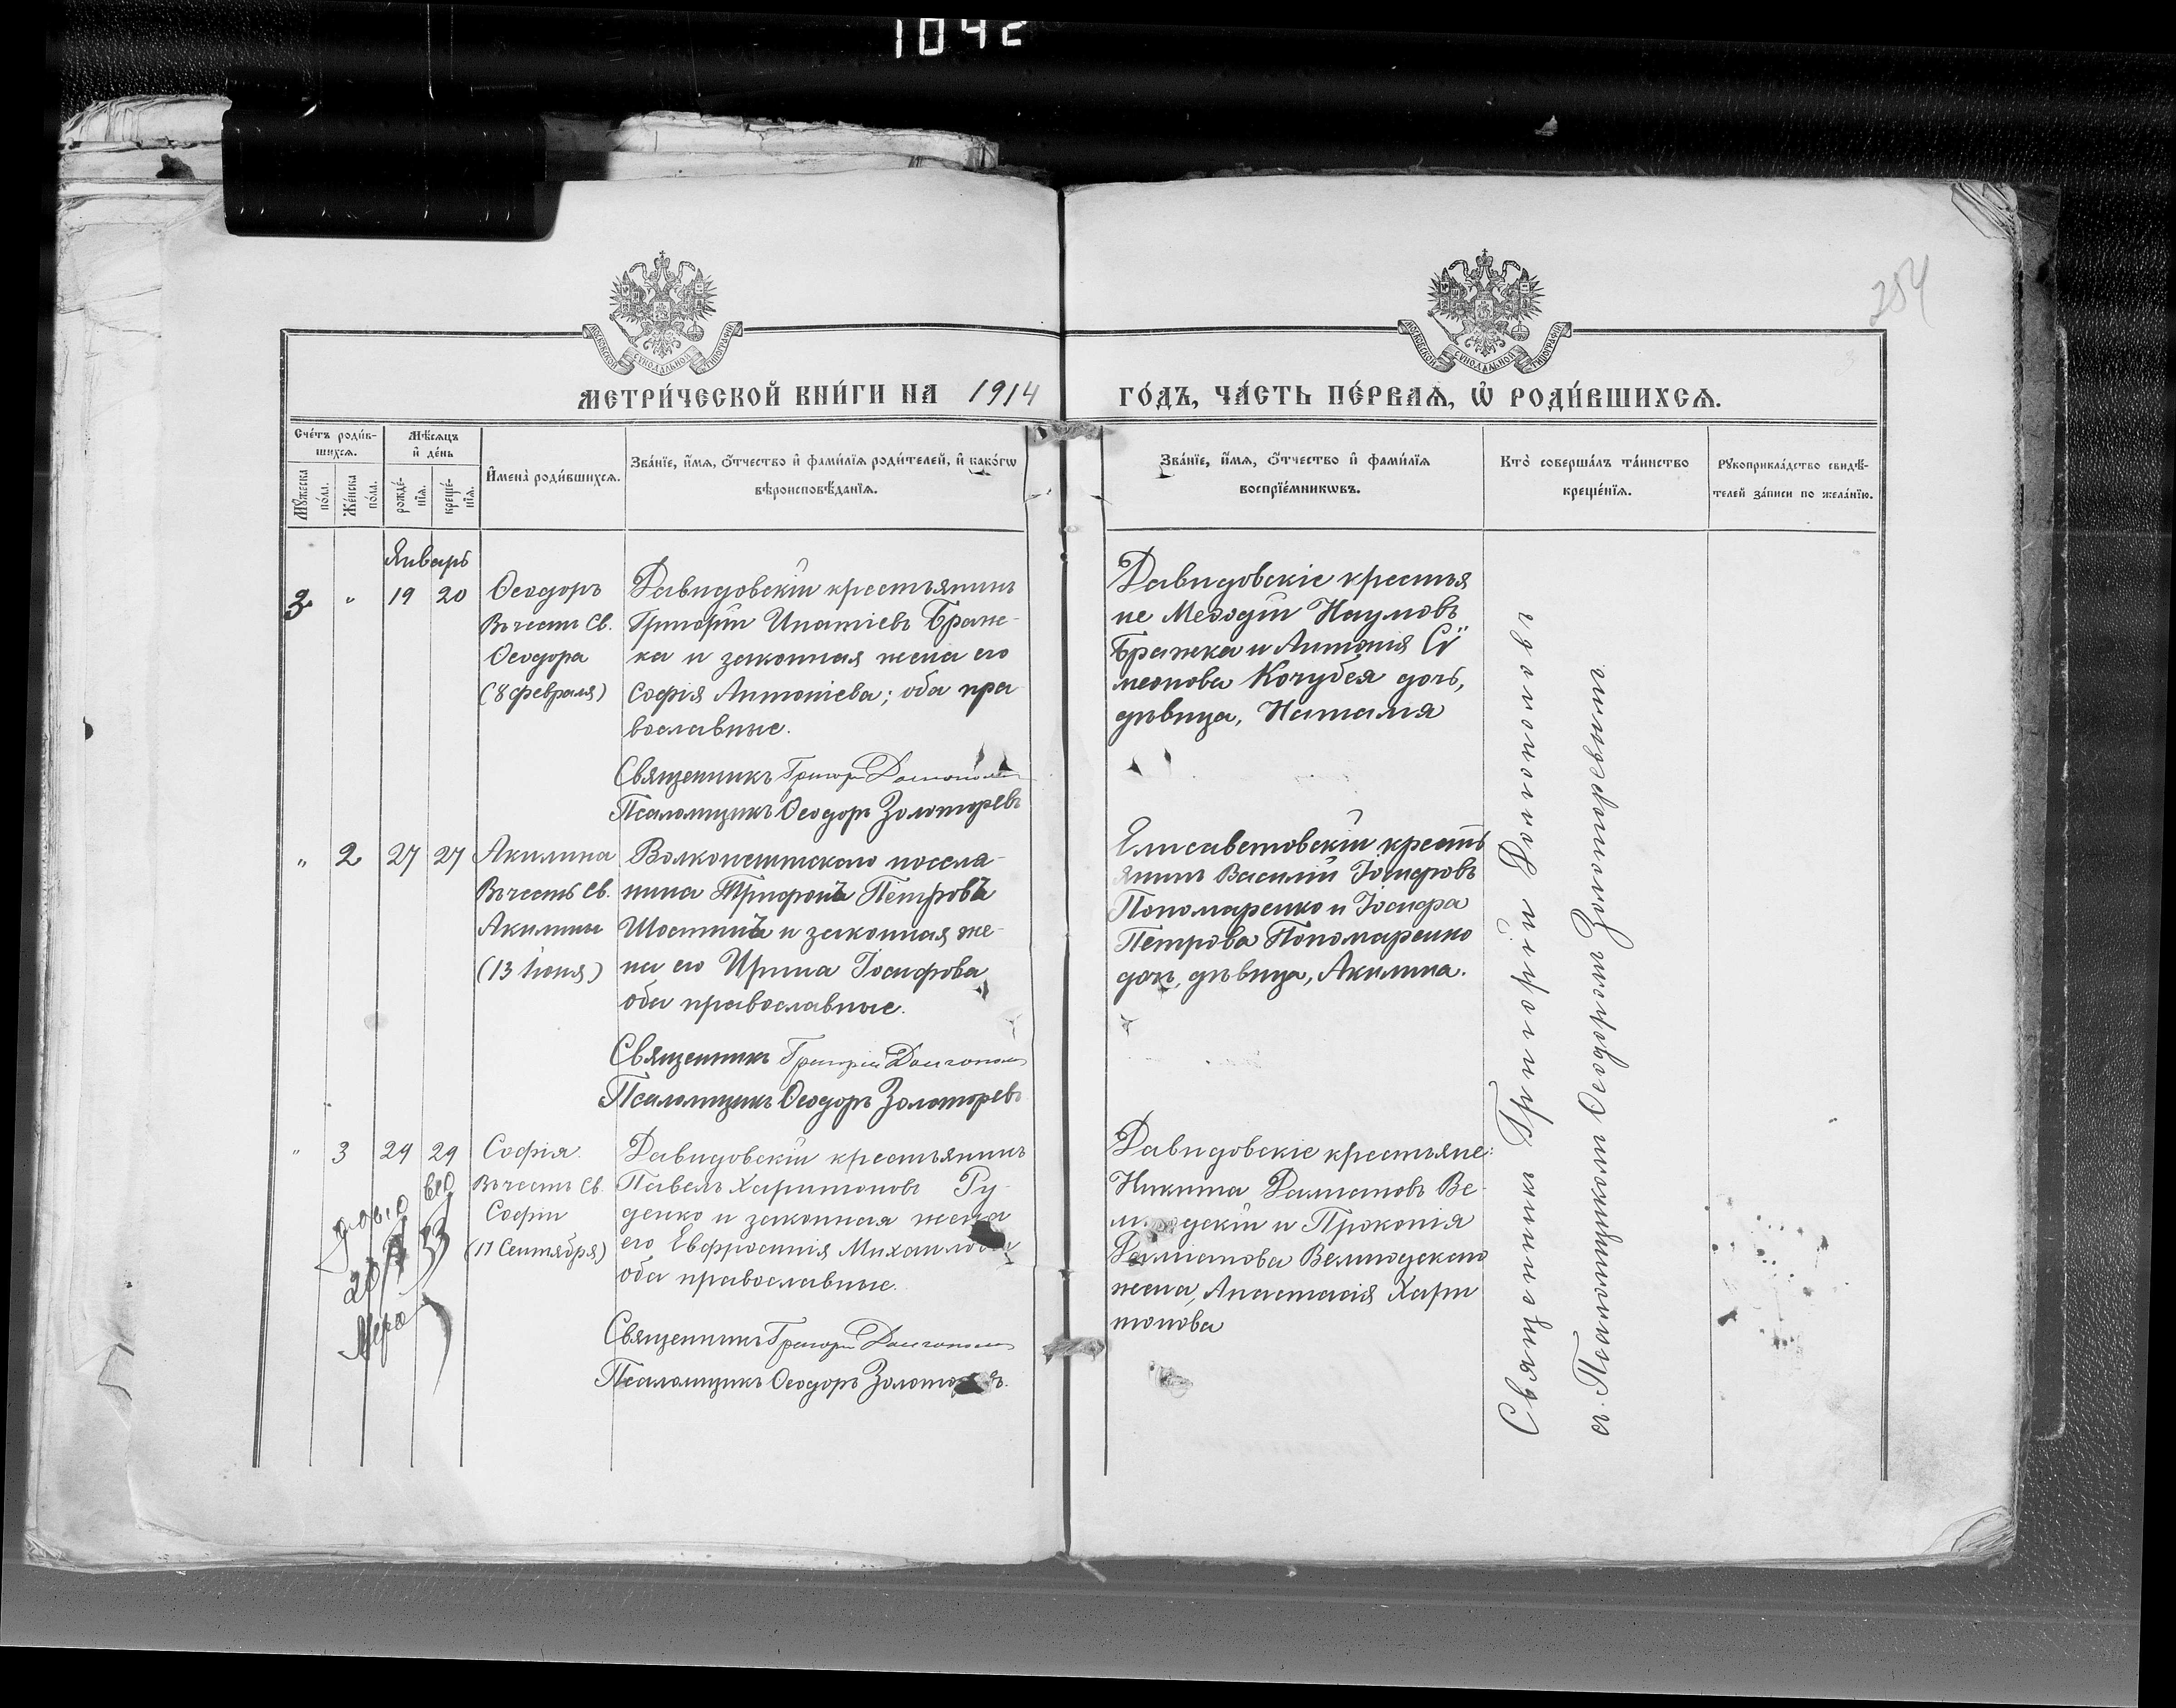 1042
254
МЕТРИ́ЧЕСКОЙ КНИ́ГИ НА 1914 ГО́ДЪ, ЧА́СТЬ ПЕ́РВАѦ, Ѡ҆ РОДИ́ВШИХСѦ.
Сче́тъ роди́в-
шихсѧ.
Мꙋ́жеска по́ла.
Же́нска по́ла.
Мѣ́сѧцъ
и҆ де́нь
рожде́-
нїѧ.
креще́-
нїѧ.
И҆мена̀ роди́вшихсѧ.
Зва́нїе, и҆́мѧ, ѻ҆́тчество и҆ фами́лїѧ роди́телей, и҆ како́гѡ
вѣроисповѣ́данїѧ.
Зва́нїе, и҆́мѧ, ѻ҆́тчество и҆ фами́лїѧ
воспрїе́мникѡвъ.
Кто̀ соверша́лъ та́инство
креще́нїѧ.
Рꙋкоприкла́дство свидѣ́-
телей за́писи по жела́нїю.
Январь
3 " 19 20
Ѳеодоръ
Въ честь Св.
Ѳеодора
(8 февраля)
Давидовскій крестьянинъ
Григорій Ипатіевъ Браже-
ка и законная жена его
Софія Антоніева; оба пра
вославные.
Священникъ Григорій Долгополовъ
Псаломщикъ Ѳеодоръ Золотаревъ
Давидовскіе крестья
не Меѳодій Наумовъ
Бражека и Антонія Сѵ
меонова Кочубея дочь,
дѣвица, Наталія
" 2 27 27
Акилина
Въ честь Св.
Акилины
(13 Іюня)
Волконештскаго посела-
нина Трифонъ Петровъ
Шостинъ и законная же-
на его Ирина Іосифова
оба православные.
Священникъ Григорій Долгополовъ
Псаломщикъ Ѳеодоръ Золотаревъ
Елисаветовскій кресть
янинъ Василій Іосифовъ
Пономаренко и Іосифа
Петрова Пономаренко
дочь, дѣвица, Акилина.
" 3 29 29
Софія.
Въ честь Св.
Софіи
(17 Сентября)
Давидовскій крестьянинъ
Павелъ Харитоновъ Ру-
денко и законная жена
его Евфросинія Михаилова
оба православные.
Священникъ Григорій Долгополовъ
Псаломщикъ Ѳеодоръ Золотаревъ.
Давидовскіе крестьяне:
Никита Далматовъ Ве-
и Прокопія
Далматова
жена, Анастасія Хари
тонова
33
Священникъ Григорій Долгополовъ
съ Псаломщикомъ Ѳеодоромъ Золотаревымъ